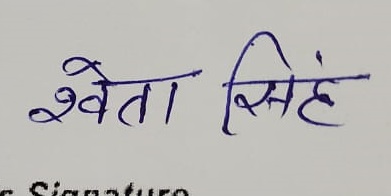 श्वेता सिंह
Signature